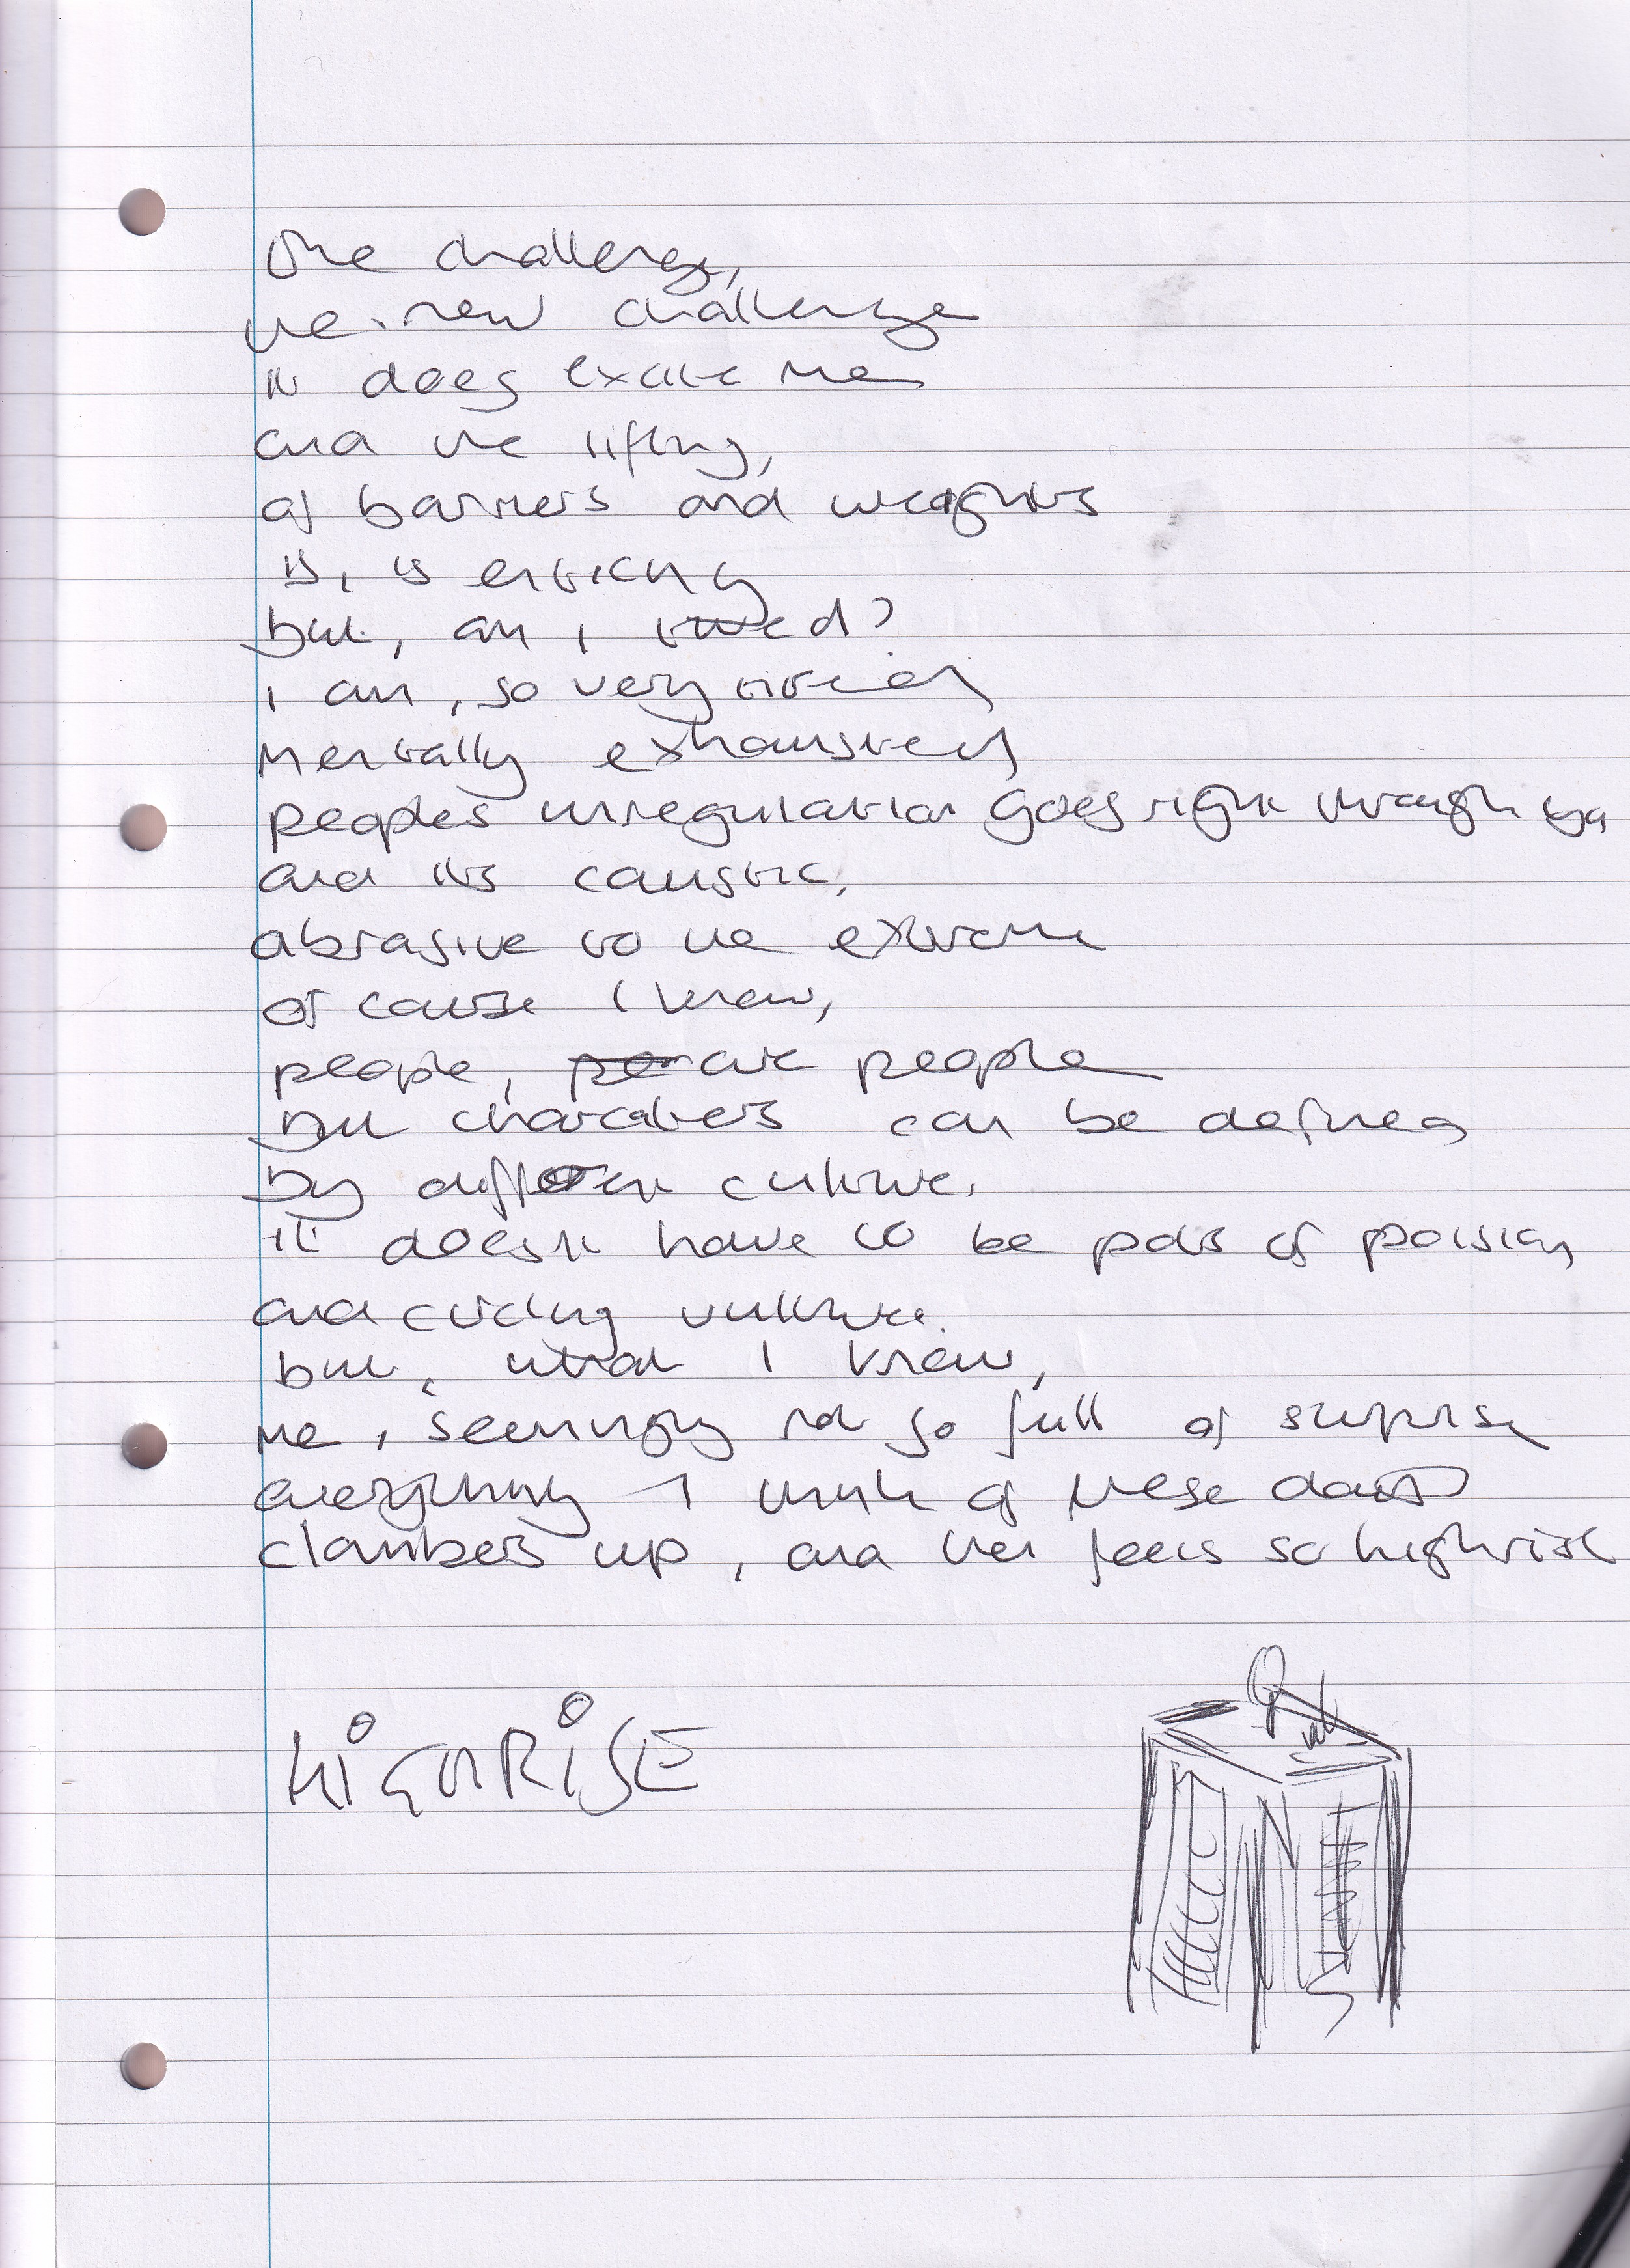 The challenge,
the new challenge
it does excite me
and the lifting,
of barriers and weights
is, is enticing
but, am I tired?
I am, so very tired
mentally exhausted
peoples unregulation goes right through you
and its caustic,
abrasive to the extreme
of cause I know,
people, are people
but characters can be defined
by different culture.
it doesn't have to be pots of poison,
and circling vulture.
but, what I know,
me, seemingly not so full of surprise
everything I think of these days
clambers up, and then feels so highrise
HiGHRiSE